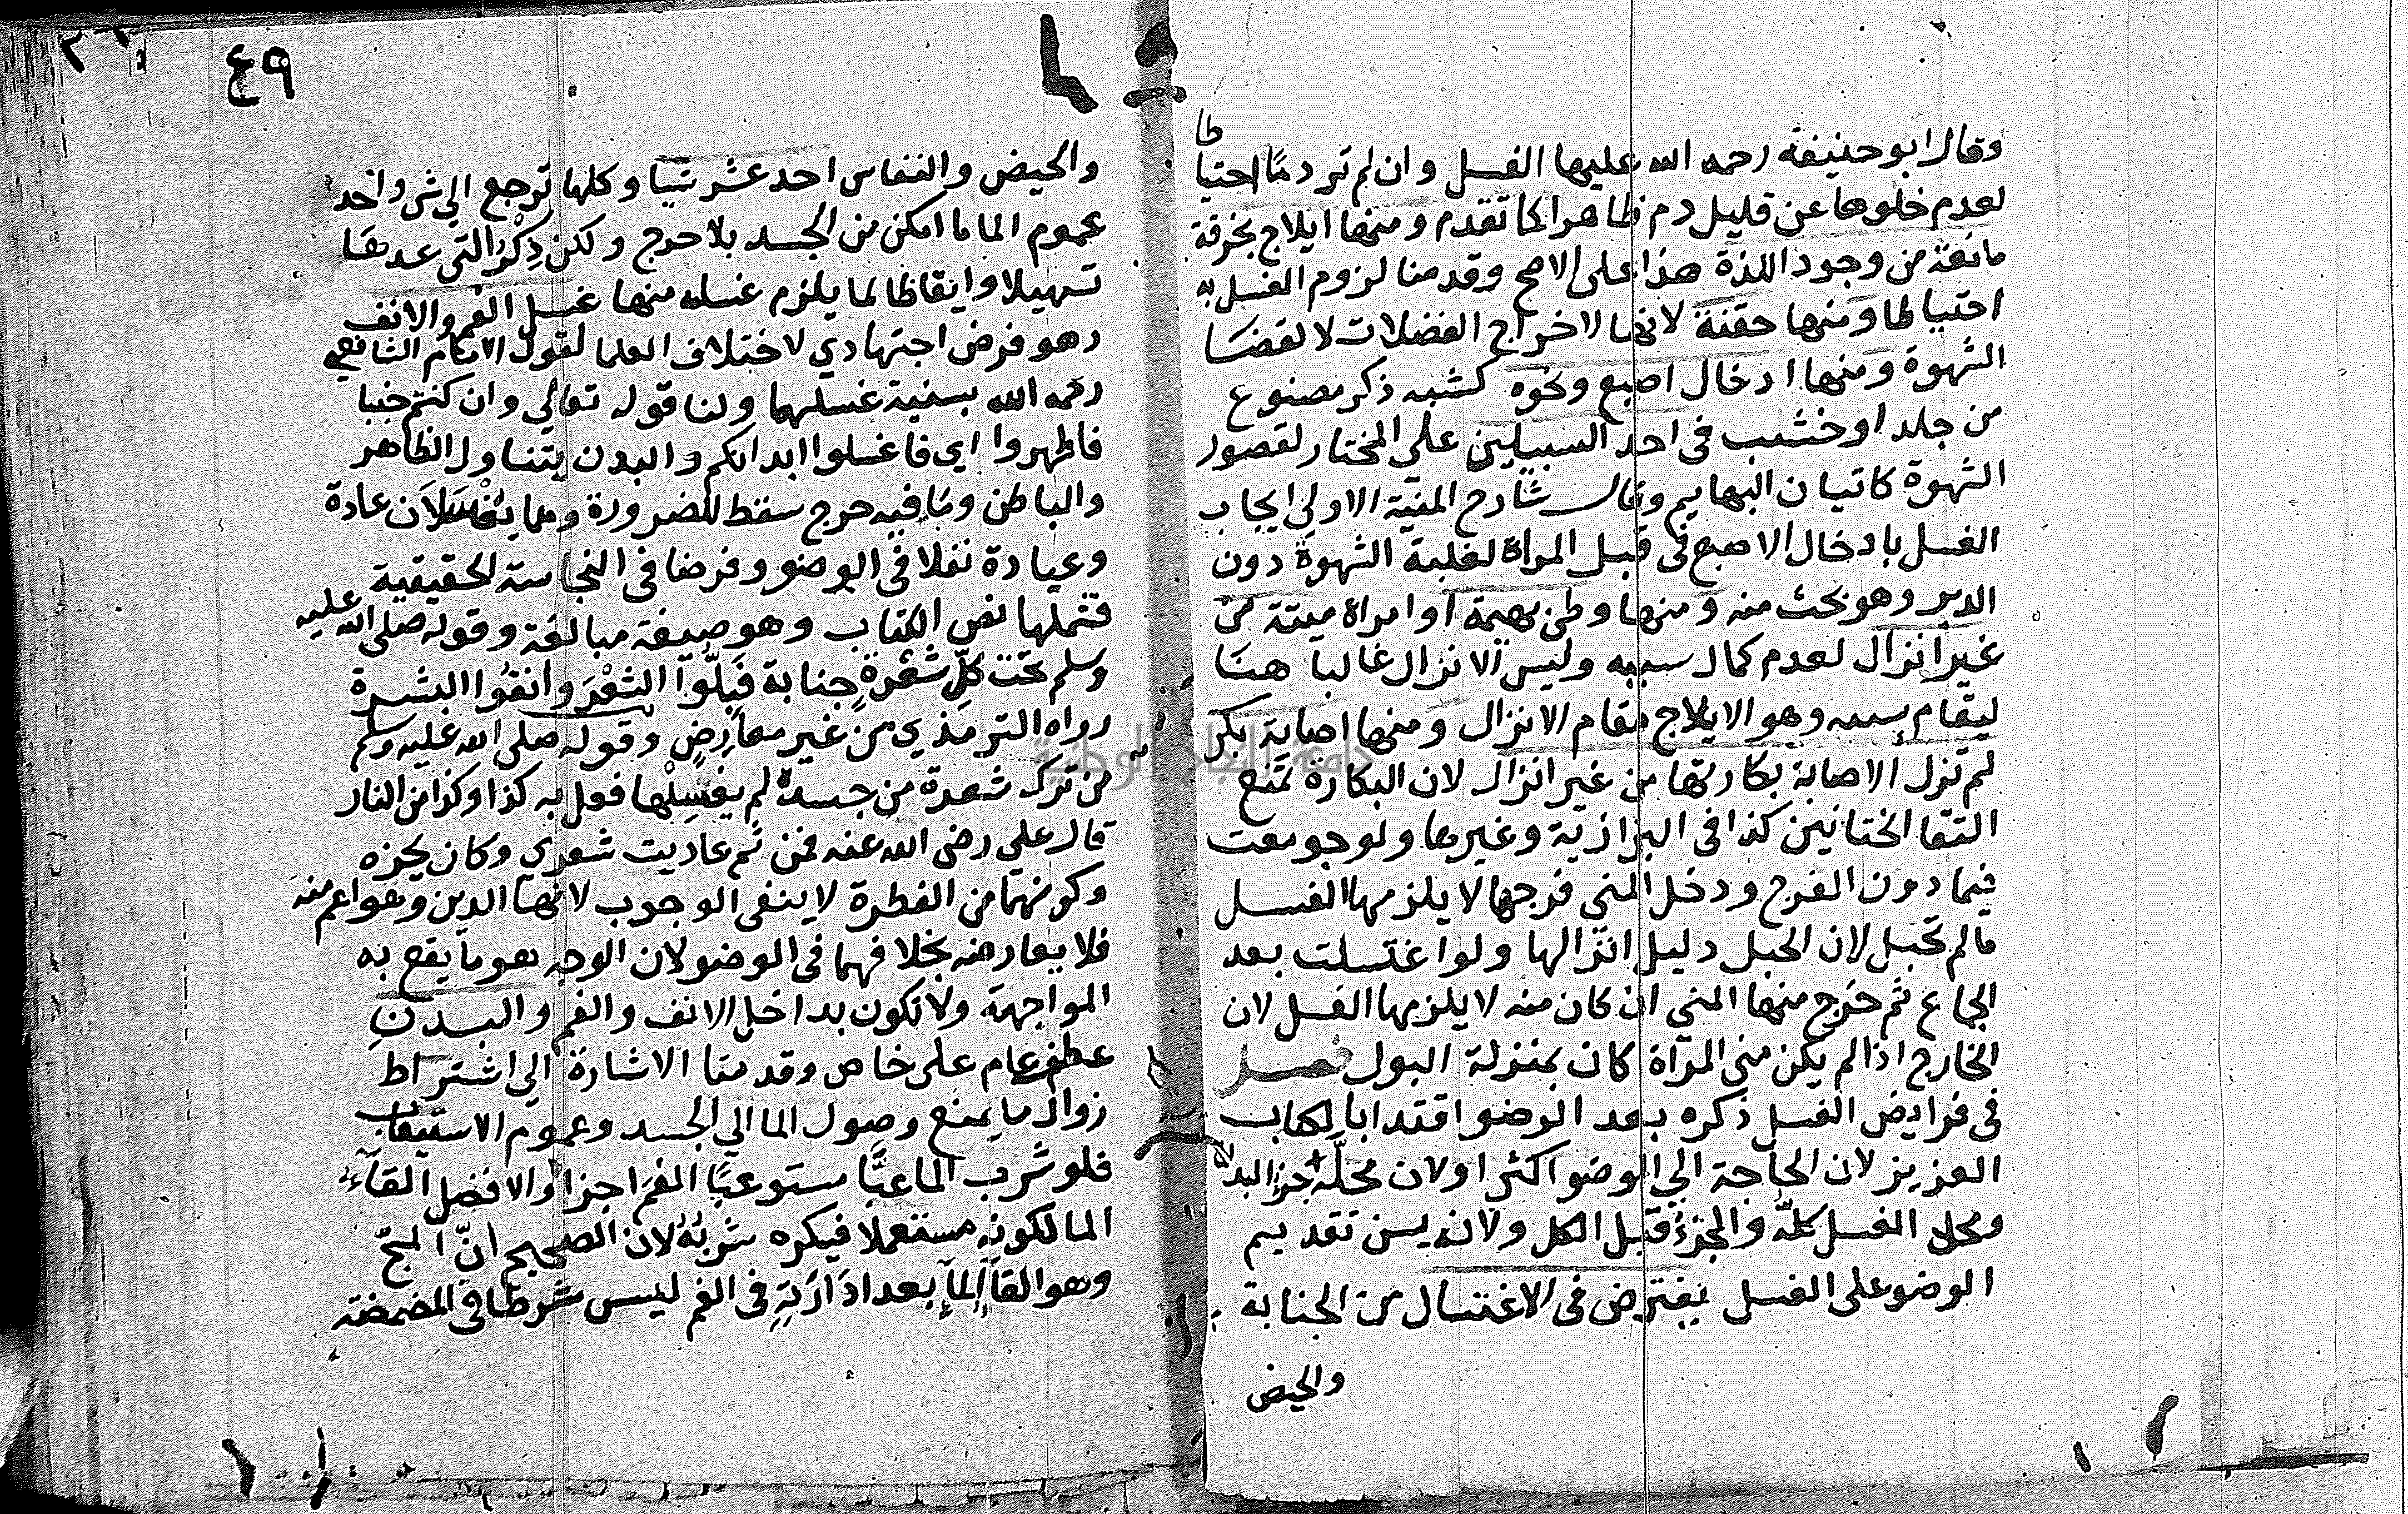 وقال ابو حنيفة رحمه الله عليها الغسل وان لم تر دمًا احتيا
طا
لعدم خلوها عن قليل دم ظاهرا كما تقدم ومنها ايلاج بخرقة
مانعة من وجود اللذة هذا على الاصح وقدمنا لزوم الغسل به
احتياطا ومنها حقنة لانها لاخراج الفضلات لا لقضا
الشهوة ومنها ادخال اصبع ونحوه كشبه ذكر مصنوع
من جلد او خشب في احد السبيلين على المختار لقصور
الشهوة كاتيان البهايم وقال شارح المنية الاولى ايجاب
الغسل بادخال الاصبع في قبل المراة لغلبة الشهوة دون
الدبر وهو بحث منه ومنها وطئ بهيمة او امراة ميتة من
غير انزال لعدم كمال سببه وليس الانزال غالبا هنا
ليقام سببه وهو الايلاج مقام الانزال ومنها اصابة بكر
لم تزل الاصابة بكارتها من غير انزال لان البكارة تمنع
التقا الختانين كذا في البزازية وغيرها ولو جومعت
فيما دون الفرج ودخل المني فرجها لا يلزمها الغسل
مالم تحبل لان الحبل دليل انزالها ولو اغتسلت بعد
الجماع ثم خرج منها المني ان كان منه لا يلزمها الغسل لان
الخارج اذا لم يكن مني المراة كان بمنزلة البول فصل
في فرايض الغسل ذكره بعد الوضو اقتدا بالكتاب
العزيز لان الحاجة الى الوضو اكثر او لان محلّه جزء البدن
ومحل الغسل كلّه والجزء قبل الكل ولانه يسن تقديم
الوضو على الغسل يفترض في الاغتسال من الجنابة
والحيض
٤٩
والحيض والنفاس احد عشر شيا وكلها ترجع الى شئ واحد
عموم الما ما امكن من الجسد بلا حرج ولكن ذِكْرُ التي عدها
تسهيلا وايقاظا لما يلزم غسله منها غسل الفم والانف
وهو فرض اجتهادي لاختلاف العلما لقول الامام الشافعي
رحمه الله بسنية غسلهما ولنا قوله تعالي وان كنتم جنبا
فاطهروا اي فاغسلوا ابدانكم والبدن يتناول الظاهر
والباطن وما فيه حرج سقط للضرورة وهما يُغْسَلَان عادة
وعبادة نفلا في الوضو وفرضا في النجاسة الحقيقية
فشملها نص الكتاب وهو صيغة مبالغة وقوله صلى الله عليه
وسلم تحت كلّ شعرةٍ جنابة فبلّوا الشعْرَ وانقُوا البشرة
رواه الترمذي من غير معارضٍ وقوله صلى الله عليه وسلم
من ترك شعرة من جسده لم يغسِلْها فعل به كذا وكذا من النار
قال علي رضي الله عنه فمن ثم عاديت شعري وكان يجزه
وكونهما من الفطرة لا ينفي الوجوب لانها الدين وهو اعم منه
فلا يعارضه بخلافهما في الوضو لان الوجه هو ما يقع به
المواجهة ولا تكون بداخل الانف والفم والبدنِ
عطف عام على خاص وقدمنا الاشارة الي اشتراط
زوال ما يمنع وصول الما الي الجسد وعموم الاستيعاب
فلو شرب الما عبًّا مستوعبًا الفم اجزا والافضل القاء
الما لكونه مستعملا فيكره شربُهُ لان الصحيح انّ المجّ
وهو القا الما بعد ادارتِهِ في الفم ليس شرطا في المضمضة